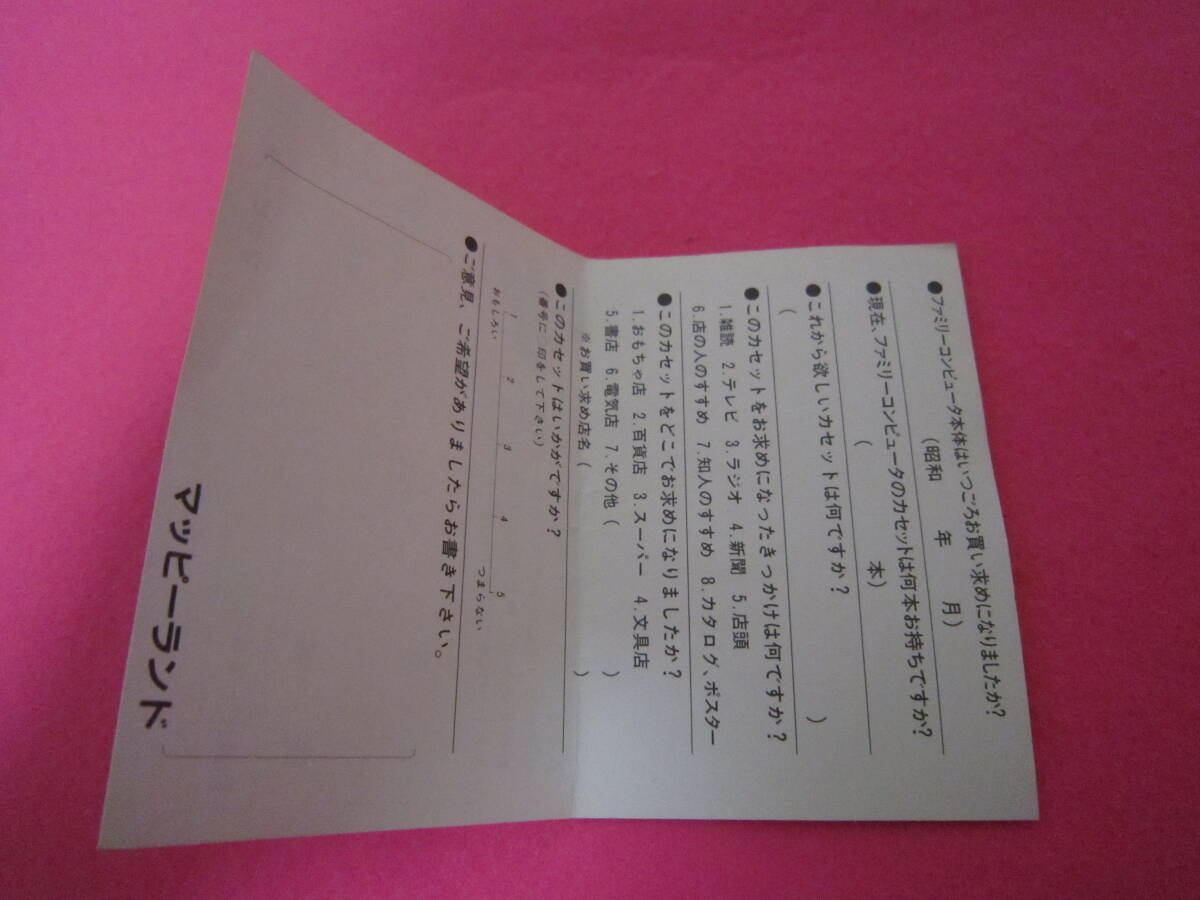 ●ファミリーコンピュータ本体はいつごろお買い求めになりましたか?
(昭和 年 月)
●現在、ファミリーコンピュータのカセットは何本お持ちですか?
( 本)
●これから欲しいカセットは何ですか?
( )
●このカセットをお求めになったきっかけは何ですか?
1.雑読 2.テレビ 3.ラジオ 4.新聞 5.店頭
6.店の人のすすめ 7.知人のすすめ 8.カタログ、ポスター
●このカセットをどこでお求めになりましたか?
1.おもちゃ店 2.百貨店 3.スーパー 4.文具店
5.書店 6.電気店 7.その他( )
※お買い求め店名( )
●このカセットはいかがですか?
(番号に 印をして下さい)
1 2 3 4 5
おもしろい つまらない
●ご意見、ご希望がありましたらお書き下さい。
マッピーランド